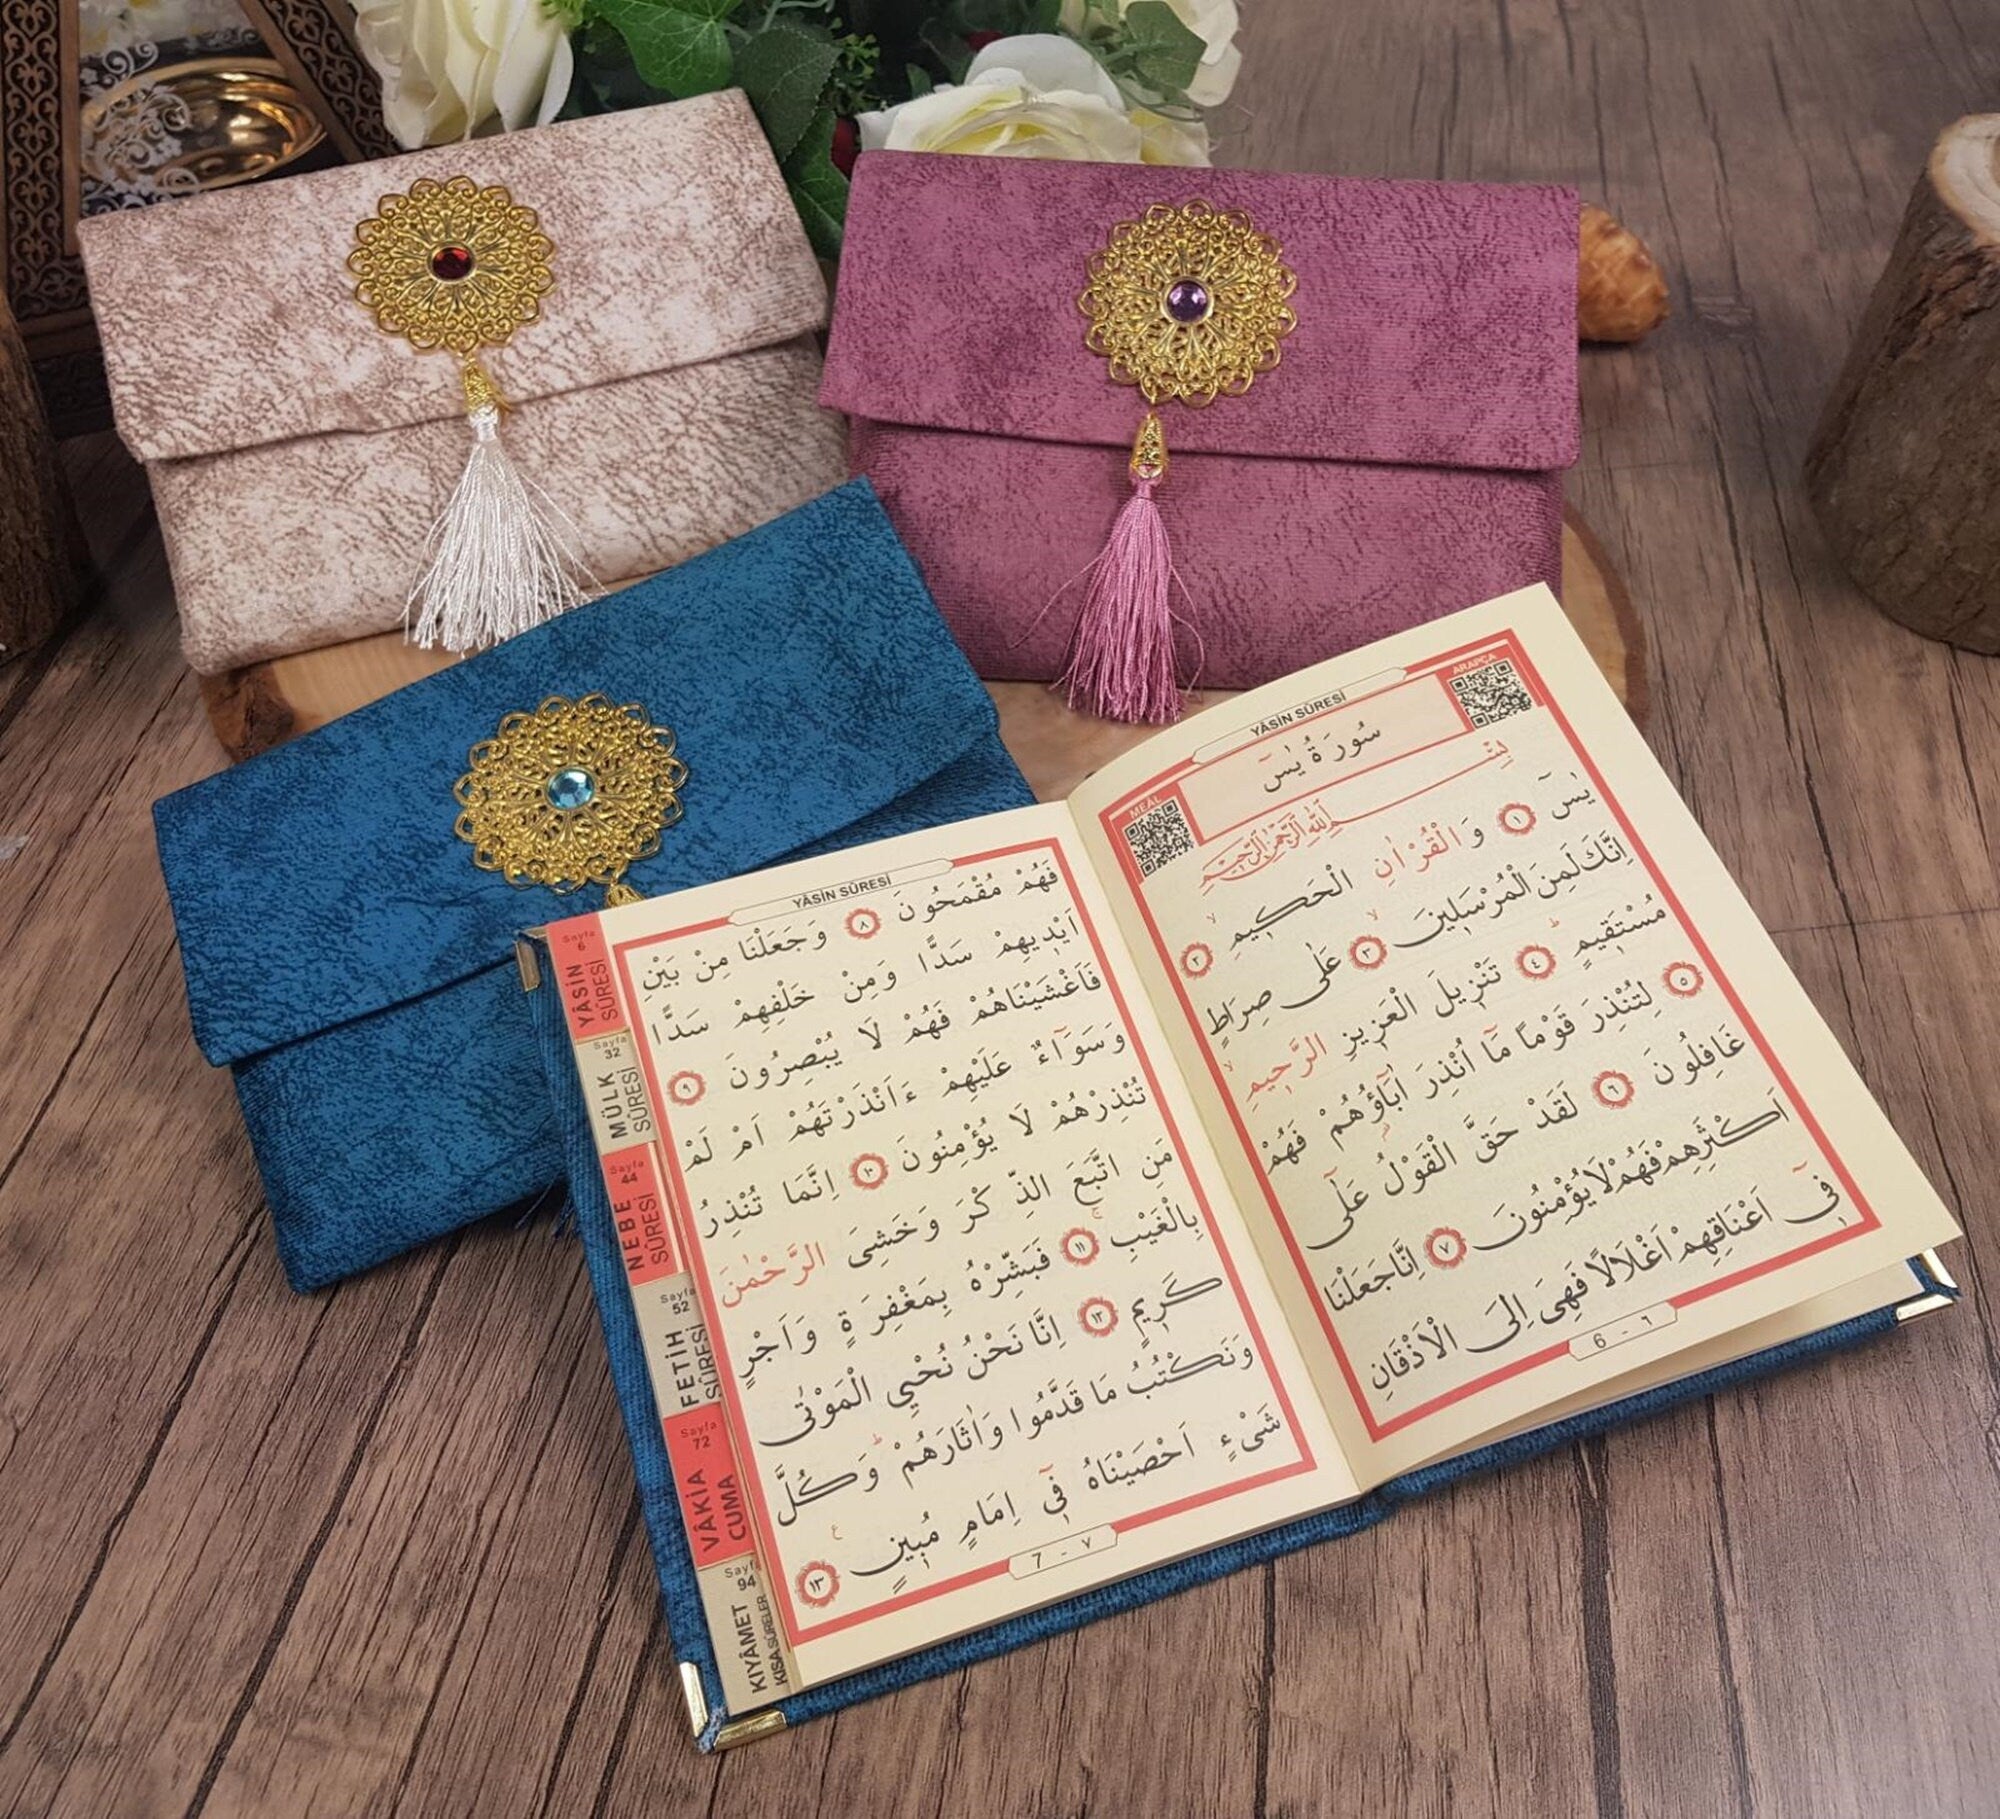 YÂSİN SÛRESİ
ARAPÇA
MEÂL
سُورَةُ يٰسٓ
بِسْمِ اللّٰهِ الرَّحْمٰنِ الرَّحِيمِ
يٰسٓ ﴿١﴾ وَالْقُرْاٰنِ الْحَكِيمِ ﴿٢﴾
اِنَّكَ لَمِنَ الْمُرْسَلِينَ ﴿٣﴾ عَلٰى صِرَاطٍ
مُسْتَقِيمٍ ﴿٤﴾ تَنْزِيلَ الْعَزِيزِ الرَّحِيمِ
﴿٥﴾ لِتُنْذِرَ قَوْمًا مَٓا اُنْذِرَ اٰبَٓاؤُهُمْ فَهُمْ
غَافِلُونَ ﴿٦﴾ لَقَدْ حَقَّ الْقَوْلُ عَلٰٓى
اَكْثَرِهِمْ فَهُمْ لَا يُؤْمِنُونَ ﴿٧﴾ اِنَّا جَعَلْنَا
فِٓى اَعْنَاقِهِمْ اَغْلَالًا فَهِىَ اِلَى الْاَذْقَانِ
6 - ٦
YÂSİN SÛRESİ
فَهُمْ مُقْمَحُونَ ﴿٨﴾ وَجَعَلْنَا مِنْ بَيْنِ
اَيْدِيهِمْ سَدًّا وَمِنْ خَلْفِهِمْ سَدًّا
فَاَغْشَيْنَاهُمْ فَهُمْ لَا يُبْصِرُونَ ﴿٩﴾
وَسَوَٓاءٌ عَلَيْهِمْ ءَاَنْذَرْتَهُمْ اَمْ لَمْ
تُنْذِرْهُمْ لَا يُؤْمِنُونَ ﴿١٠﴾ اِنَّمَا تُنْذِرُ
مَنِ اتَّبَعَ الذِّكْرَ وَخَشِىَ الرَّحْمٰنَ
بِالْغَيْبِ ﴿١١﴾ فَبَشِّرْهُ بِمَغْفِرَةٍ وَاَجْرٍ
كَرِيمٍ ﴿١٢﴾ اِنَّا نَحْنُ نُحْيِي الْمَوْتٰى
وَنَكْتُبُ مَا قَدَّمُوا وَاٰثَارَهُمْ وَكُلَّ
شَىْءٍ اَحْصَيْنَاهُ فِٓى اِمَامٍ مُبِينٍ ﴿١٣﴾
7 - ٧
Sayfa 6
YÂSİN SÛRESİ
Sayfa 32
MÜLK SÛRESİ
Sayfa 44
NEBE SÛRESİ
Sayfa 52
FETİH SÛRESİ
Sayfa 72
VÂKİA CUMA
Sayfa 94
KIYÂMET KISA SÛRELER